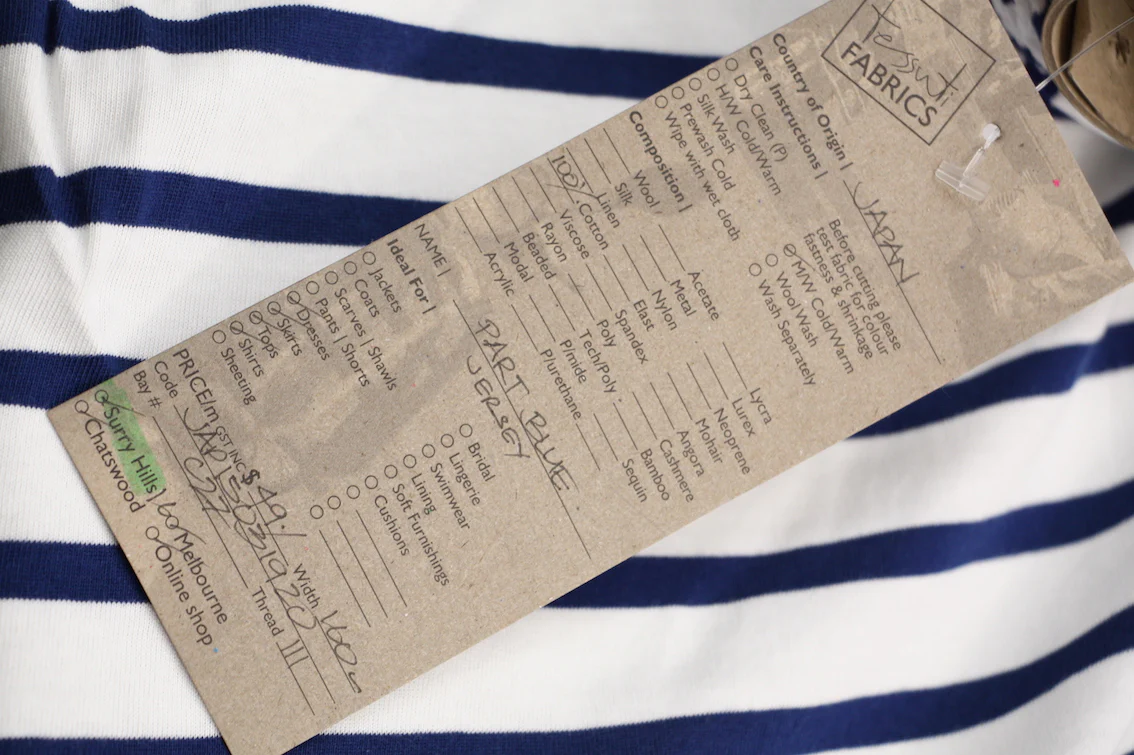 tessuti
FABRICS
Country of Origin | JAPAN
Care Instructions |
Dry Clean (P)
H/W Cold/Warm
Silk Wash
Prewash Cold
Wipe with wet cloth
Before cutting please
test fabric for colour
fastness & shrinkage
M/W Cold/Warm
Wool Wash
Wash Separately
Composition |
Wool
Silk
Linen
100% Cotton
Viscose
Rayon
Beaded
Modal
Acrylic
Acetate
Metal
Nylon
Elast
Spandex
Poly
Tech/Poly
P/mide
P/urethane
Lycra
Lurex
Neoprene
Mohair
Angora
Cashmere
Bamboo
Sequin
NAME | PART BLUE
JERSEY
Ideal For |
Jackets
Coats
Scarves | Shawls
Pants | Shorts
Dresses
Skirts
Tops
Shirts
Sheeting
Bridal
Lingerie
Swimwear
Lining
Soft Furnishings
Cushions
PRICE/m GST INC $ 49.- Width 160
Code JAP15031920
Bay # C27 Thread |||
Surry Hills Melbourne
Chatswood Online shop